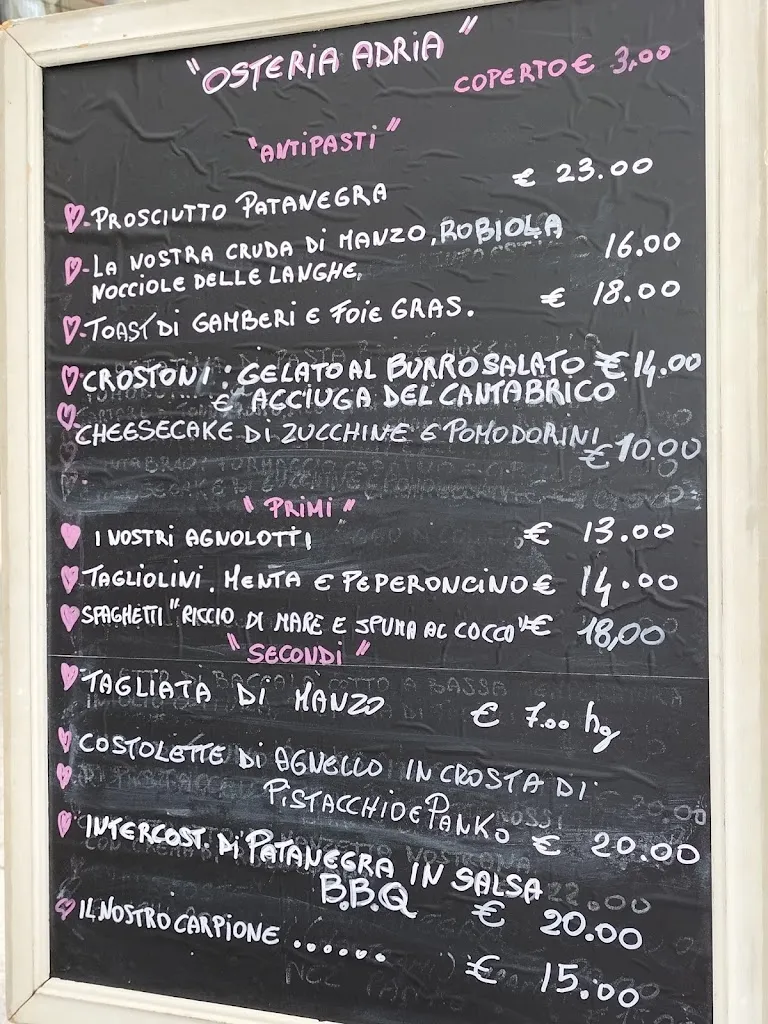 "OSTERIA ADRIA"
COPERTO € 3,00
"ANTIPASTI"
PROSCIUTTO PATANEGRA € 23.00
-LA NOSTRA CRUDA DI MANZO, ROBIOLA
NOCCIOLE DELLE LANGHE, 16.00
-TOAST DI GAMBERI E FOIE GRAS. € 18.00
CROSTONI: GELATO AL BURRO SALATO € 14.00
E ACCIUGA DEL CANTABRICO
CHEESECAKE DI ZUCCHINE E POMODORINI
€ 10.00
"PRIMI"
I NOSTRI AGNOLOTTI € 13.00
TAGLIOLINI. MENTA E PEPERONCINO € 14.00
SPAGHETTI "RICCIO DI MARE E SPUMA AL COCCO" € 18,00
"SECONDI"
TAGLIATA DI MANZO € 7.00 hg
COSTOLETTE DI AGNELLO IN CROSTA DI
PISTACCHIO E PANKO € 20.00
INTERCOST. DI PATANEGRA IN SALSA
B.B.Q € 20.00
IL NOSTRO CARPIONE ...... € 15.00